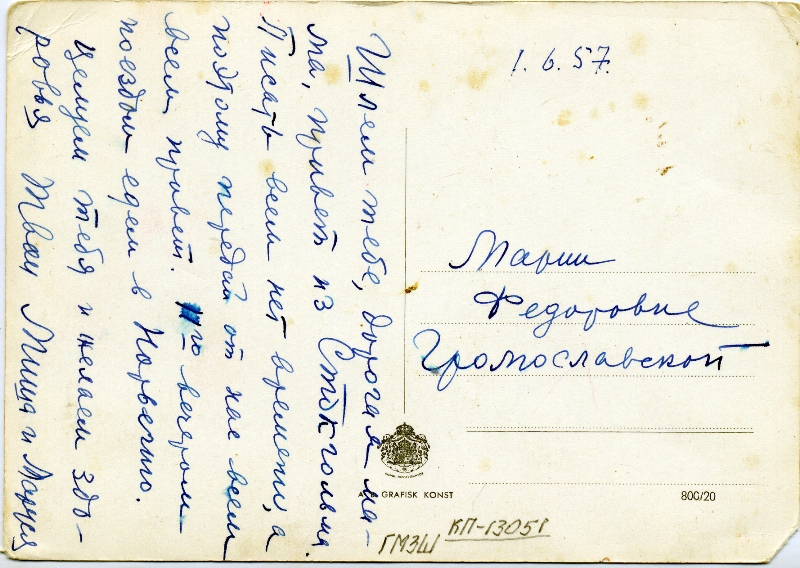 Шлем тебе, дорогая ма-
ма, привет из Стокгольма.
Писать всем нет времени, а
поэтому передай от нас всем
всем привет. 1го вечером
поездом едем в Норвегию.
Целуем тебя и желаем здо-
ровья Твои Миша и Мария
1. 6. 57.
Марии
Федоровне
Громославской
GRAFISK KONST
800/20
ГМЗШ КП-13051